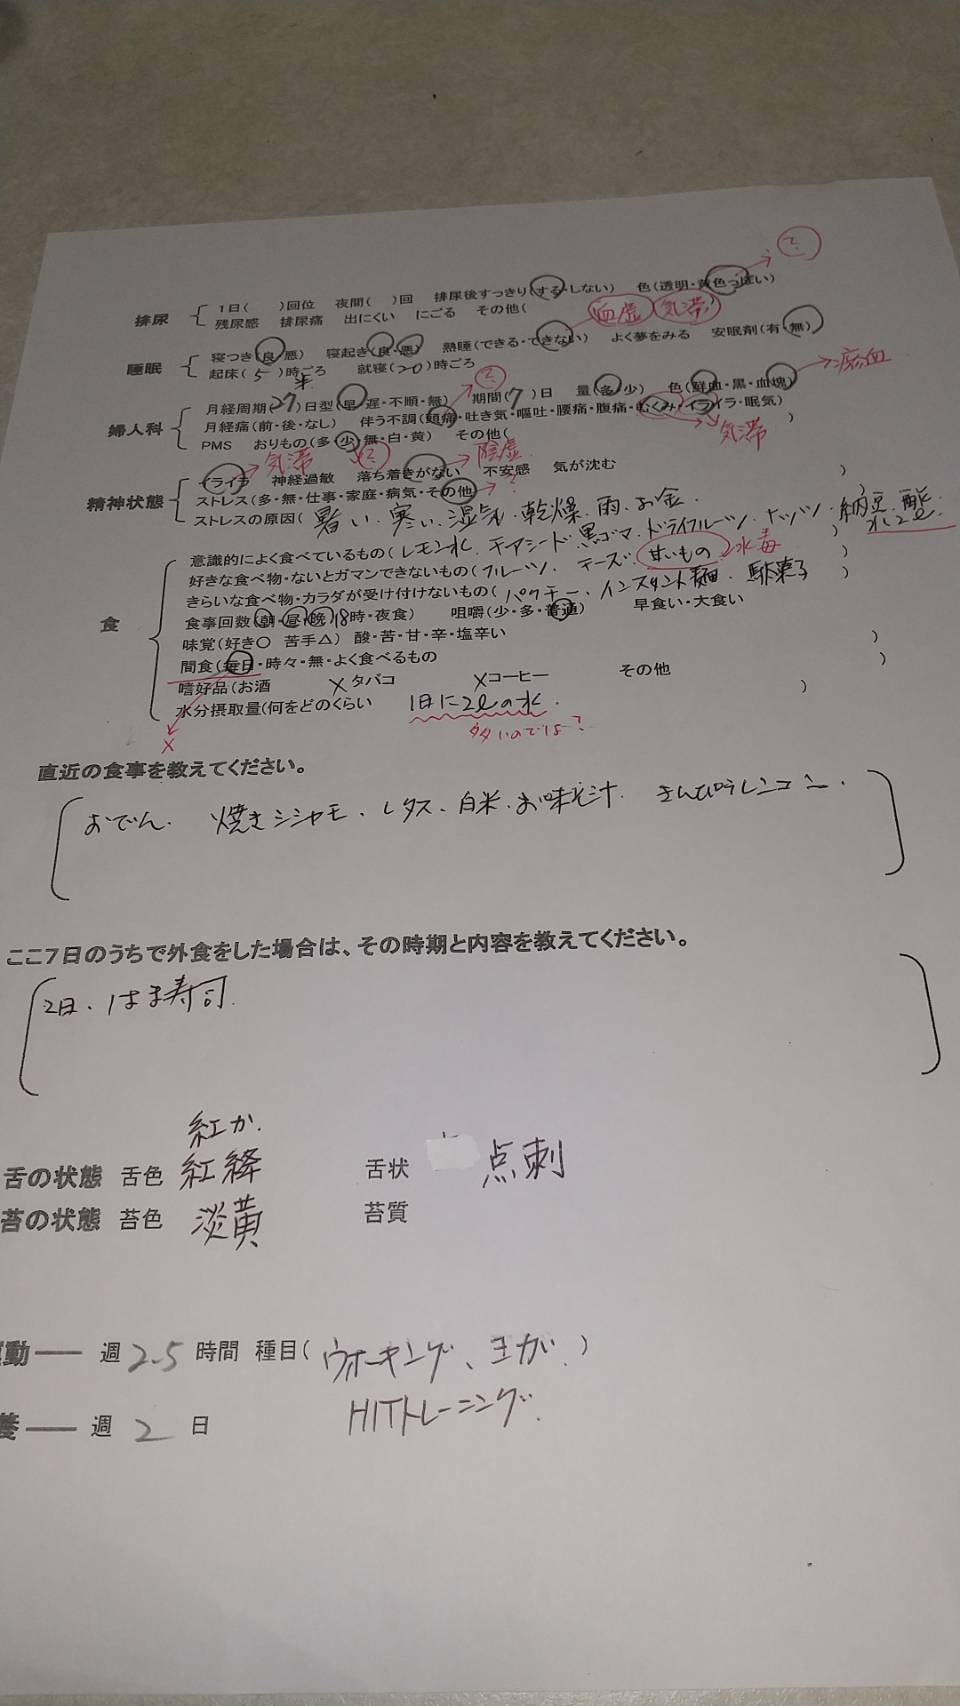 ?
排尿 1日( )回位 夜間( )回 排尿後すっきり(する・しない) 色(透明・黄色っぽい)
残尿感 排尿痛 出にくい にごる その他(
血虚 気滞
睡眠 寝つき(良・悪) 寝起き(良・悪) 熟睡(できる・できない) よく夢をみる 安眠剤(有・無)
起床(5)時ごろ 就寝(20)時ごろ
?
瘀血
婦人科 月経周期(27)日型(早・遅・不順・無) 期間(7)日 量(多・少) 色(鮮血・黒・血塊)
月経痛(前・後・なし) 伴う不調(頭痛・吐き気・嘔吐・腰痛・腹痛・むくみ・イライラ・眠気)
PMS おりもの(多・少・無・白・黄) その他( )
気滞
気滞 ? 陰虚
精神状態 イライラ 神経過敏 落ち着きがない 不安感 気が沈む
ストレス(多・無・仕事・家庭・病気・その他 ? )
ストレスの原因(暑い、寒い、湿気、乾燥、雨、お金 )
食 意識的によく食べているもの(レモン水、チアシード、黒ゴマ、ドライフルーツ、ナッツ、納豆、酢 水2ℓ
好きな食べ物・ないとガマンできないもの(フルーツ、チーズ、甘いもの 水毒 )
きらいな食べ物・カラダが受け付けないもの(パクチー、インスタント麺、駄菓子 )
食事回数(朝・昼・晩 18時・夜食) 咀嚼(少・多・普通) 早食い・大食い
味覚(好き〇 苦手△) 酸・苦・甘・辛・塩辛い
間食(毎日・時々・無・よく食べるもの )
嗜好品(お酒 ×タバコ ×コーヒー その他 )
水分摂取量(何をどのくらい 1日に2ℓの水 )
× 多いのでは?
直近の食事を教えてください。
おでん、焼きシシャモ、レタス、白米、お味そ汁、きんぴらレンコン、
ここ7日のうちで外食をした場合は、その時期と内容を教えてください。
2日、はま寿司
紅か
舌の状態 舌色 紅絳 舌状 点刺
苔の状態 苔色 淡黄 苔質
動── 週 2.5 時間 種目(ウォーキング、ヨガ、)
HITトレーニング
養── 週 2 日